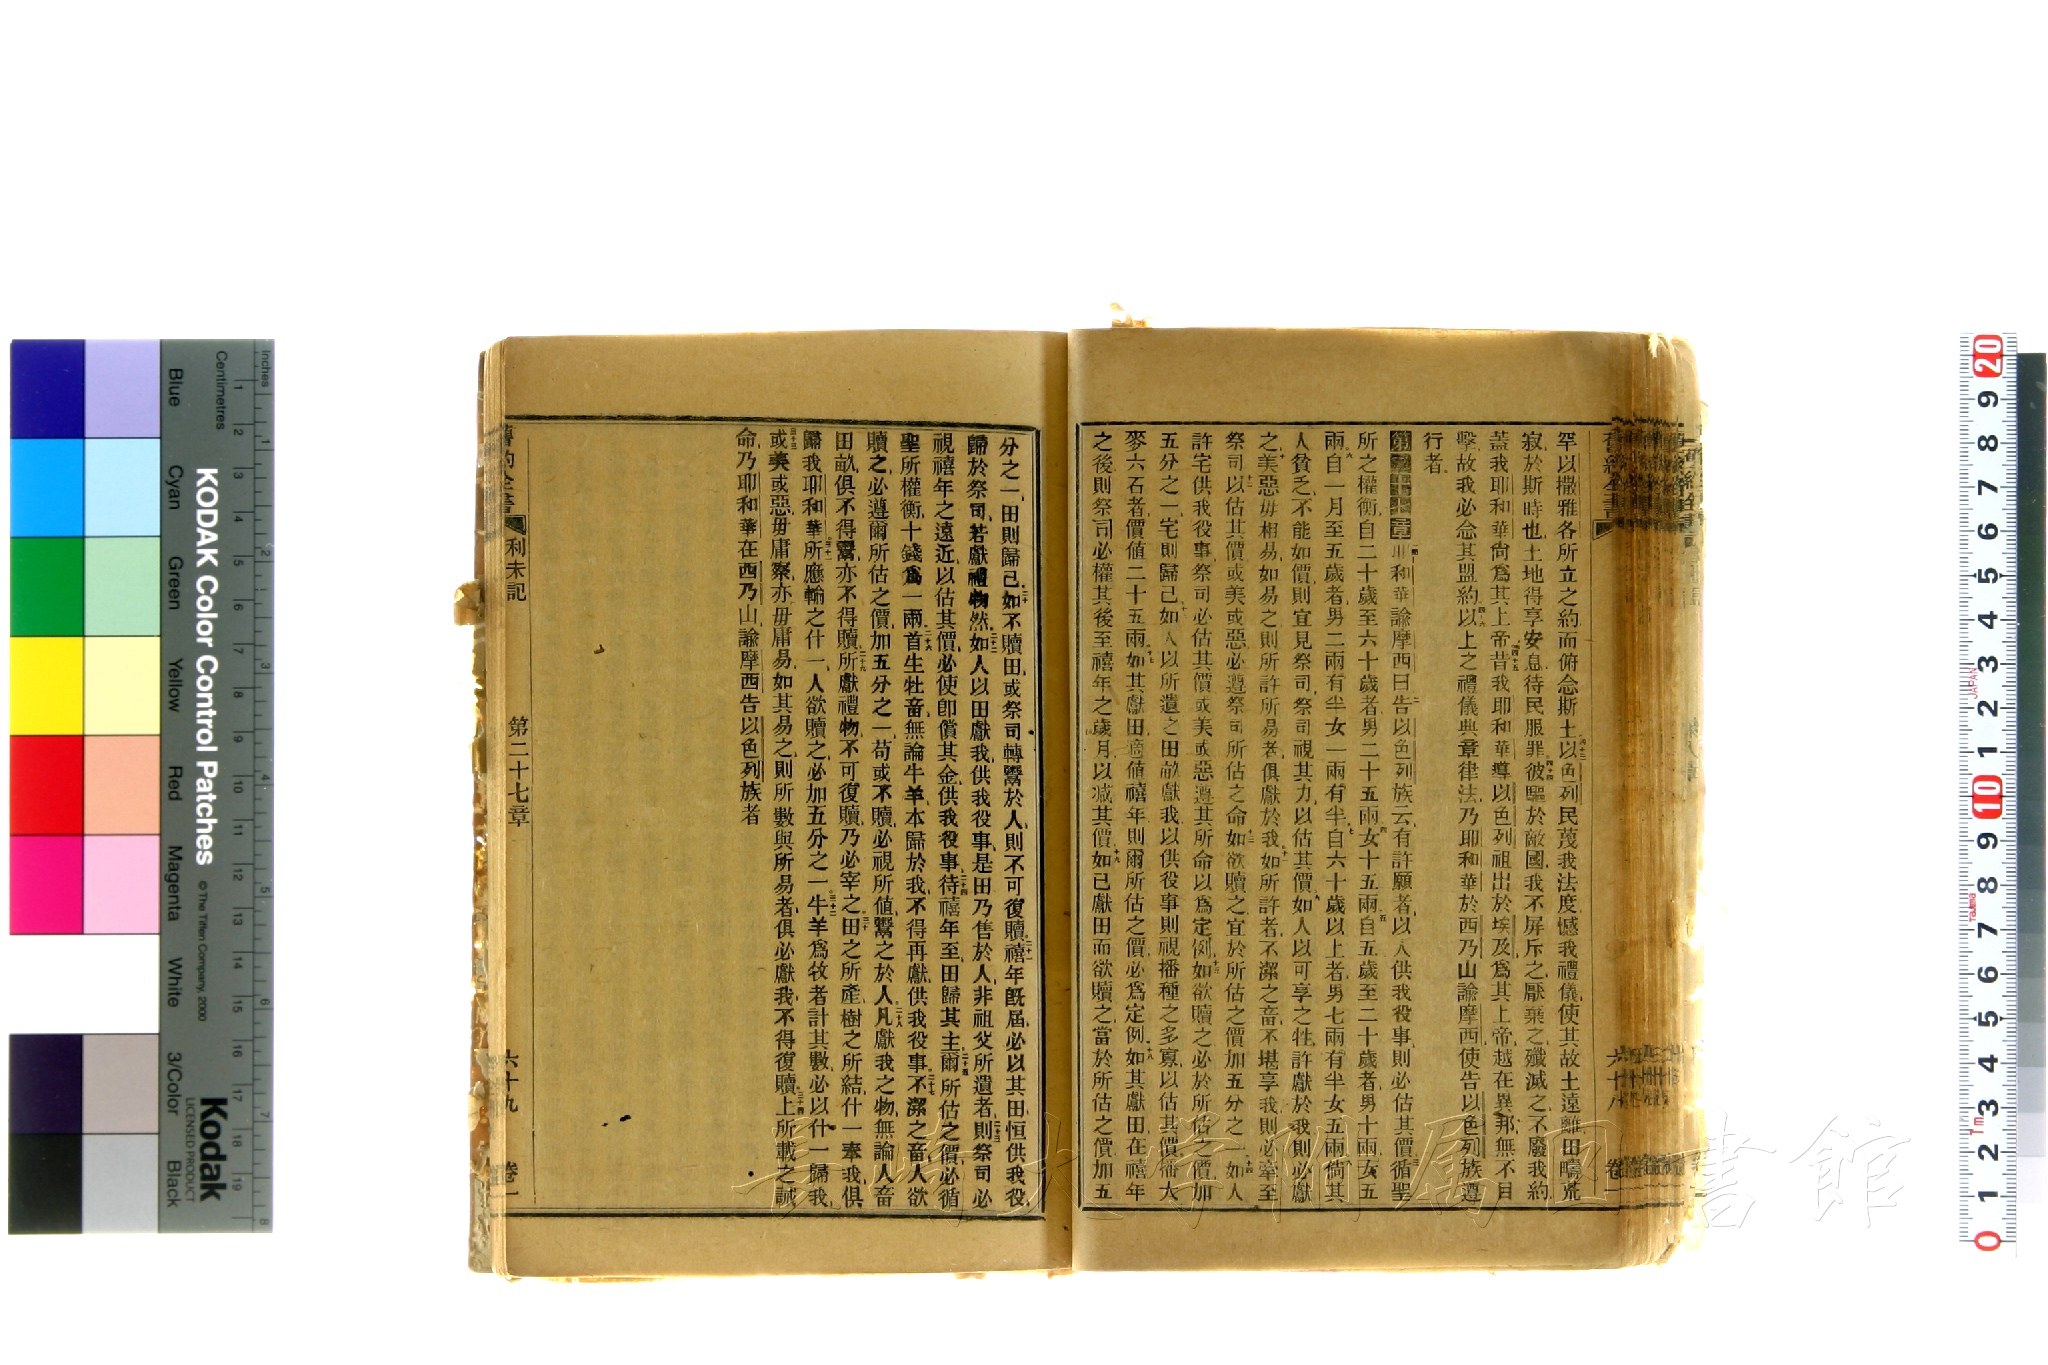 罕以撒雅各所立之約而俯念斯土以色列民蔑我法度憾我禮儀使其故土遠離田疇荒
寂於斯時也土地得享安息待民服罪彼驅於敵國我不屏斥之厭棄之殲滅之不廢我約
蓋我耶和華尙爲其上帝昔我耶和華導以色列祖出於埃及爲其上帝越在異邦無不目
擊故我必念其盟約以上之禮儀典章律法乃耶和華於西乃山諭摩西使告以色列族遵
行者
第二十七章 耶和華諭摩西曰告以色列族云有許願者以人供我役事則必估其價循聖
所之權衡自二十歲至六十歲者男二十五兩女十五兩自五歲至二十歲者男十兩女五
兩自一月至五歲者男二兩有半女一兩有半自六十歲以上者男七兩有半女五兩倘其
人貧乏不能如價則宜見祭司祭司視其力以估其價如人以可享之牲許獻於我則必獻
之美惡毋相易如易之則所許所易者俱獻於我如所許者不潔之畜不堪享我則必牽至
祭司以估其價或美或惡必遵祭司所估之命如欲贖之宜於所估之價加五分之一如人
許宅供我役事祭司必估其價或美或惡遵其所命以爲定例如欲贖之必於所估之價加
五分之一宅則歸己如人以所遺之田畝獻我以供役事則視播種之多寡以估其價播大
麥六石者價值二十五兩如其獻田適值禧年則爾所估之價必爲定例如其獻田在禧年
之後則祭司必權其後至禧年之歲月以減其價如已獻田而欲贖之當於所估之價加五
舊約全書
六十八
卷一
分之一田則歸己如不贖田或祭司轉鬻於人則不可復贖禧年旣屆必以其田恒供我役
歸於祭司若獻禮物然如人以田獻我供我役事是田乃售於人非祖父所遺者則祭司必
視禧年之遠近以估其價必使卽償其金供我役事待禧年至田歸其主爾所估之價必循
聖所權衡十錢爲一兩首生牡畜無論牛羊本歸於我不得再獻供我役事不潔之畜人欲
贖之必遵爾所估之價加五分之一苟或不贖必視所值鬻之於人凡獻我之物無論人畜
田畝俱不得鬻亦不得贖所獻禮物不可復贖乃必宰之田之所產樹之所結什一奉我俱
歸我耶和華所應輸之什一人欲贖之必加五分之一牛羊爲牧者計其數必以什一歸我
或美或惡毋庸察亦毋庸易如其易之則所數與所易者俱必獻我不得復贖上所載之誡
命乃耶和華在西乃山諭摩西告以色列族者
舊約全書 利未記
第二十七章
六十九
卷一
長崎大学附属図書館
KODAK Color Control Patches
© The Tiffen Company, 2000
Kodak
LICENSED PRODUCT
Inches
Centimetres
Blue
Cyan
Green
Yellow
Red
Magenta
White
3/Color
Black
1 2 3 4 5 6 7 8 9 10 11 12 13 14 15 16 17 18 19
1 2 3 4 5 6 7 8
20 9 8 7 6 5 4 3 2 1 10 9 8 7 6 5 4 3 2 1 0
JAPAN
Tajima
1m